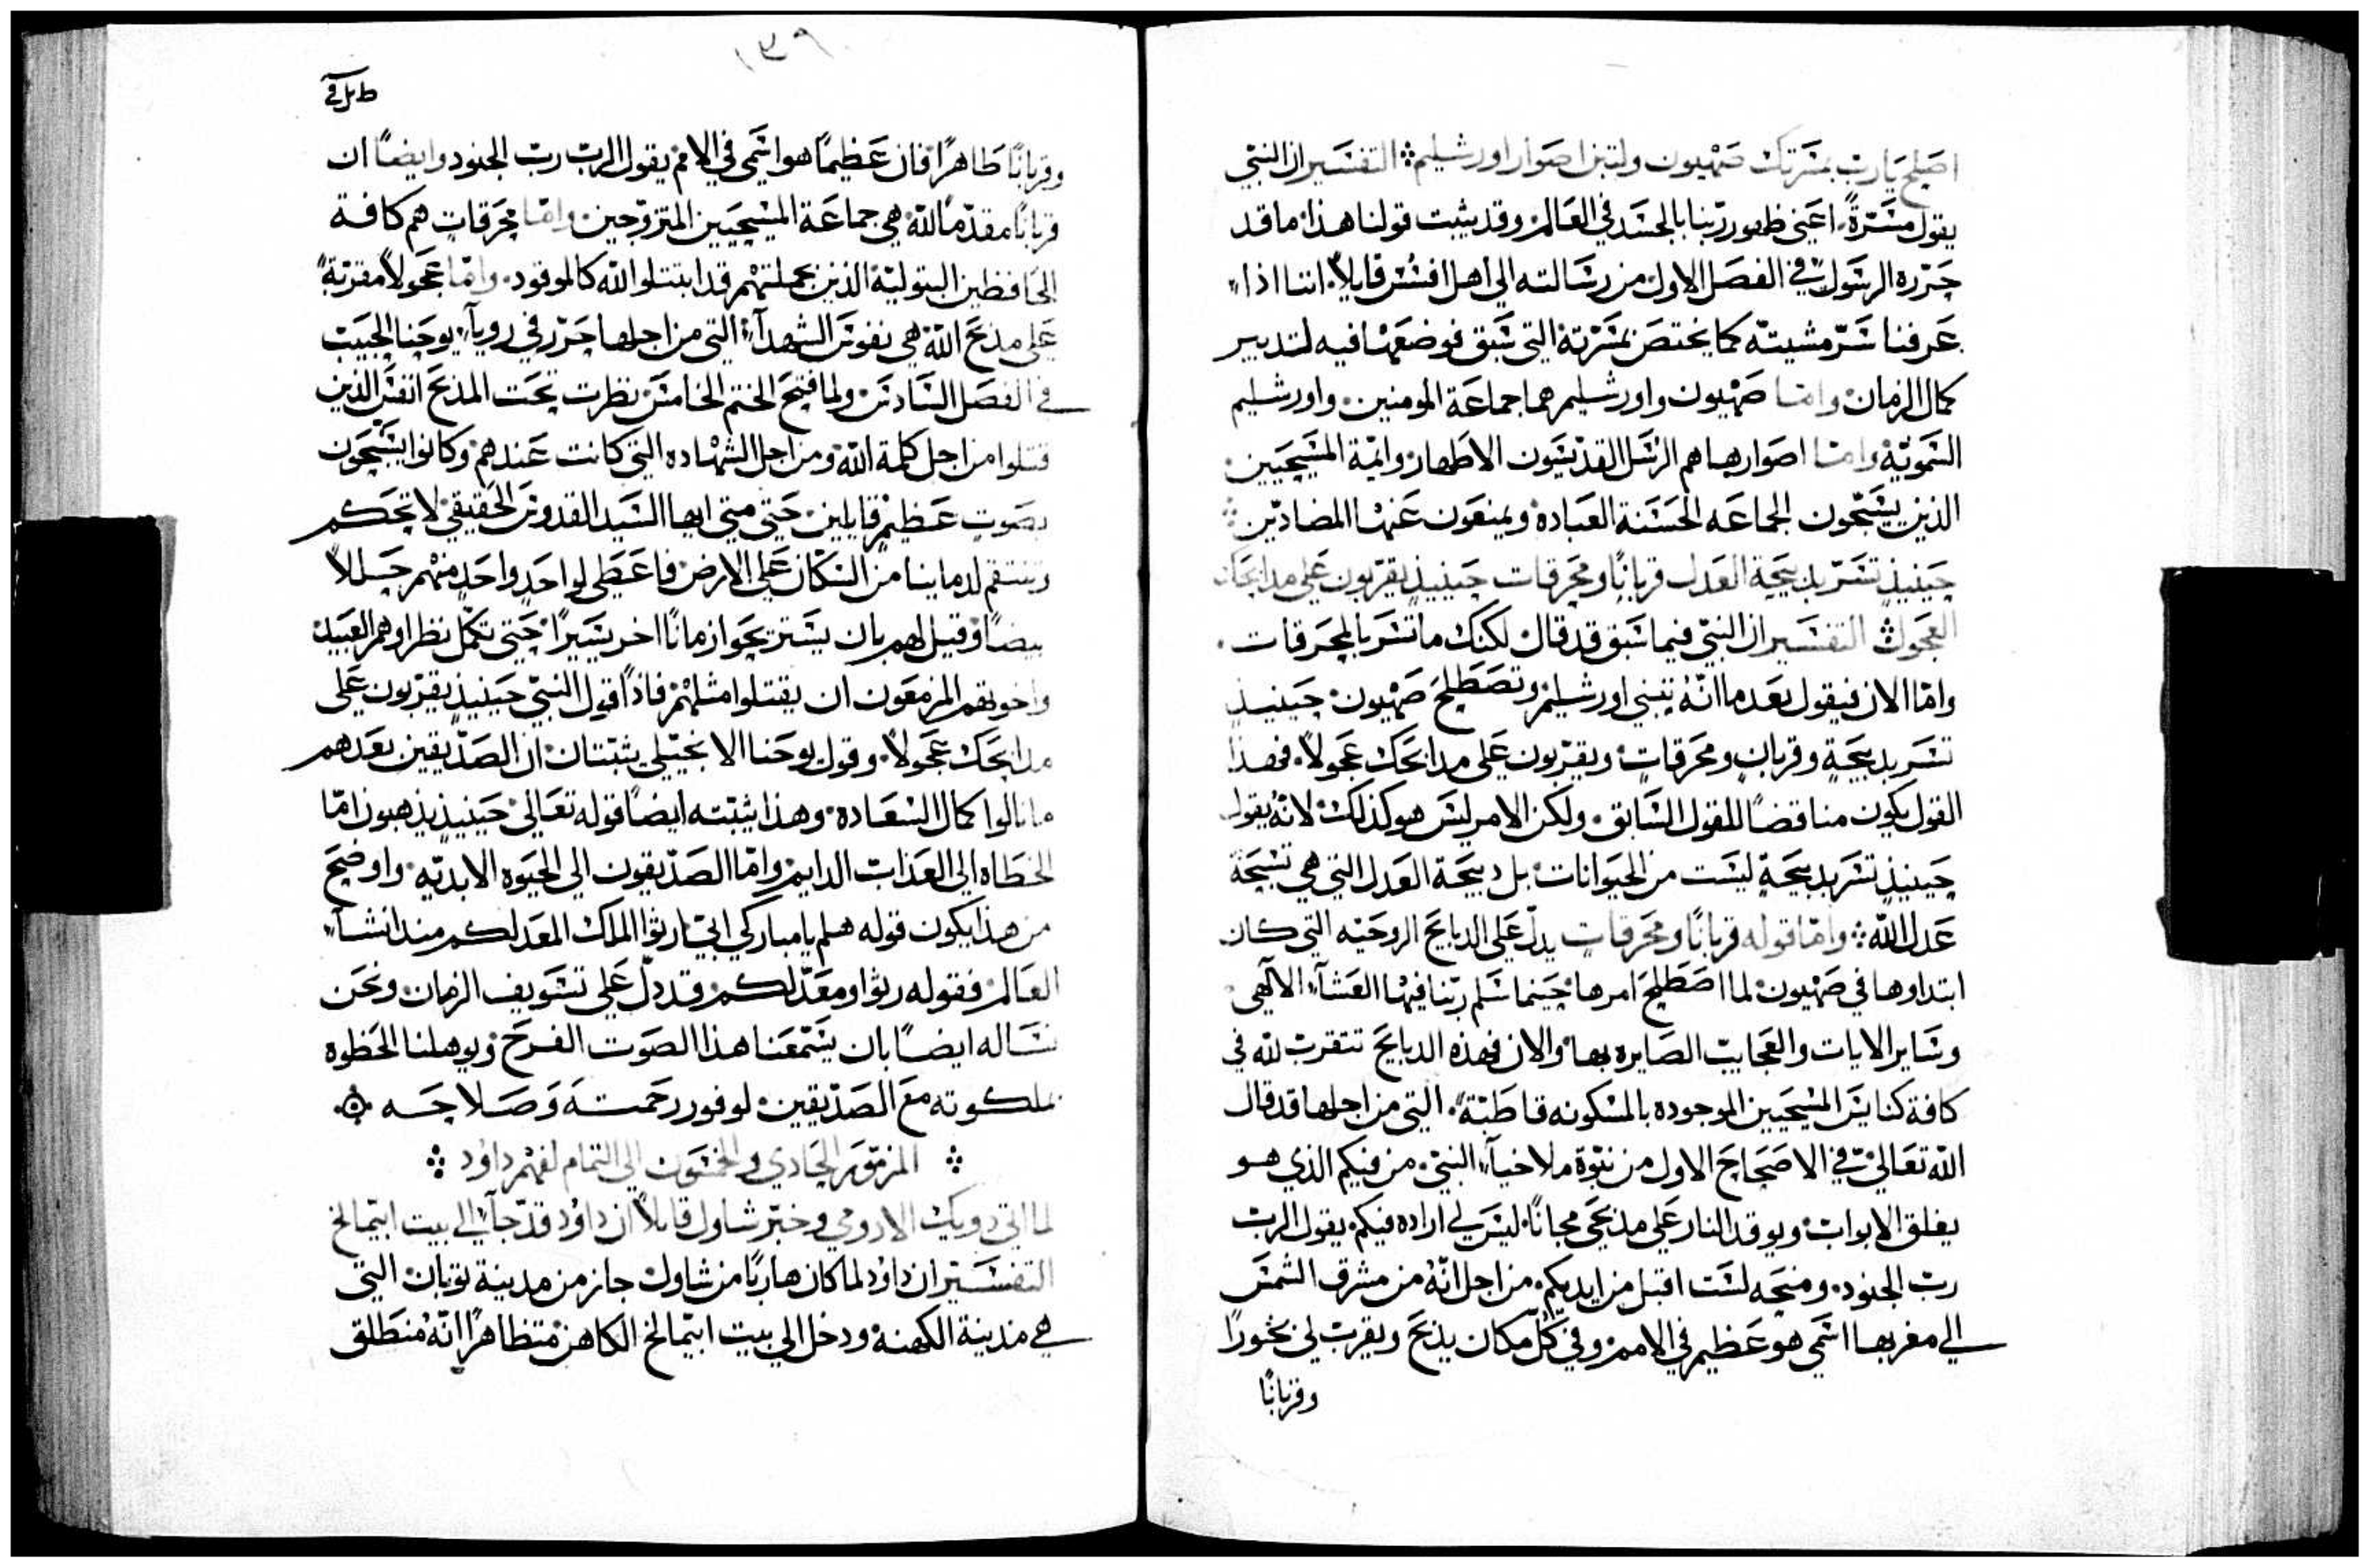 اصلح يارب بمسرتك صهيون ولتبن اصوار اورشليم ܀ التفسير ان النبي
يقول مسرةً اعني ظهور ربنا بالجسد في العالم وقد يثبت قولنا هذا ما قد
حرره الرسول في الفصل الاول من رسالته الى اهل افسس قايلاً اننا اذا
عرفنا سر مشيته كما يختص بمسرته التي سبق فوضعها فيه لتدبير
كمال الزمان واما صهيون واورشليم هما جماعة المومنين واورشليم
السموية واما اصوارها هم الرسل القديسون الاطهار وايمة المسيحيين
الذين يسيجون الجماعه الحسنة العباده ويمنعون عنها المضادين ܀
حينيذٍ تسر بذبيحة العدل قربانًا ومحرقات حينيذٍ يقربون على مذابحك
العجول ܀ التفسير ان النبي فيما سبق قد قال لكنك ما تسر بالمحرقات
واما الان فيقول بعد ما انه تبنى اورشليم وتصطلح صهيون حينيذٍ
تسر بذبيحةٍ وقربانٍ ومحرقاتٍ ويقربون على مذابحك عجولاً فهذا
القول يكون مناقضًا للقول السابق ولكن الامر ليس هو كذلك لانه يقول
حينيذٍ تسر بذبيحةٍ ليست من الحيوانات بل ذبيحة العدل التي هي تسبحة
عدل الله ܀ واما قوله قربانًا ومحرقاتٍ يدل على الذبايح الروحيه التي كان
ابتداوها في صهيون لما اصطلح امرها حينما سلم ربنا فيها العشاء الالهي
وساير الايات والعجايب الصايره بها والان فهذه الذبايح تتقرب لله في
كافة كنايس المسيحيين الموجوده بالمسكونه قاطبةً التي من اجلها قد قال
الله تعالى في الاصحاح الاول من نبوة ملاخيا النبي من فيكم الذي هو
يغلق الابواب ويوقد النار على مذبحي مجانًا ليس لي اراده فيكم يقول الرب
رب الجنود ومنحه لست اقبل من ايديكم من اجل انه من مشرق الشمس
الى مغربها اسمي هو عظيم في الامم وفي كل مكان يذبح ويقرب لي بخورًا
وقربانًا
وقربانًا طاهرًا فان عظيمًا هو اسمي في الامم يقول الرب رب الجنود وايضًا ان
قربانًا مقدمًا لله هي جماعة المسيحيين المتزوجين واما محرقاتٍ هم كافة
الحافظين البتولية الذين بجملتهم قد ابتتلوا لله كالموقود واما عجولاً مقربةً
على مذبح الله هي نفوس الشهداء التي من اجلها حرر في رويا يوحنا الحبيب
في الفصل السادس ولما فتح الختم الخامس نظرت تحت المذبح انفس الذين
قتلوا من اجل كلمة الله ومن اجل الشهاده التي كانت عندهم وكانوا يسبحون
بصوتٍ عظيمٍ قايلين حتى متى ايها السيد القدوس الحقيقي لا تحكم
وتنتقم لدماينا من السكان على الارض فاعطى لواحدٍ واحدٍ منهم حسللاً
بيضًا وقيل لهم بان يستريحوا زمانًا اخر يسيرًا حتى تكمل نظراوهم العبيد
واخوتهم المزمعون ان يقتلوا مثلهم فاذًا قول النبي حينيذٍ يقربون على
مذابحك عجولاً وقول يوحنا الانجيلي يثبتان ان الصديقين بعدهم
ما نالوا كمال السعاده وهذا يثبته ايضًا قوله تعالى حينيذٍ يذهبون اما
الخطاه الى العذاب الدايم واما الصديقون الى الحيوه الابديه واوضح
من هذا يكون قوله هلم يا مباركي ابي ارثوا الملك المعد لكم منذ انشاء
العالم فقوله رثوا ومعد لكم قد دل على تسويف الزمان ونحن
نساله ايضًا بان يسمعنا هذا الصوت الفرح ويوهلنا الحظوه
بملكوته مع الصديقين لوفور رحمته وصلاحه
܀ المزمور الحادي والخمسون الى التمام لفهم داود ܀
لما اتى دويك الادومي وخبر شاول قايلاً ان داود قد جاء الى بيت ابيمالخ
التفسير ان داود لما كان هاربًا من شاول جاز من مدينة نوبان التي
هي مدينة الكهنة ودخل الى بيت ابيمالخ الكاهن متظاهرًا انه منطلق